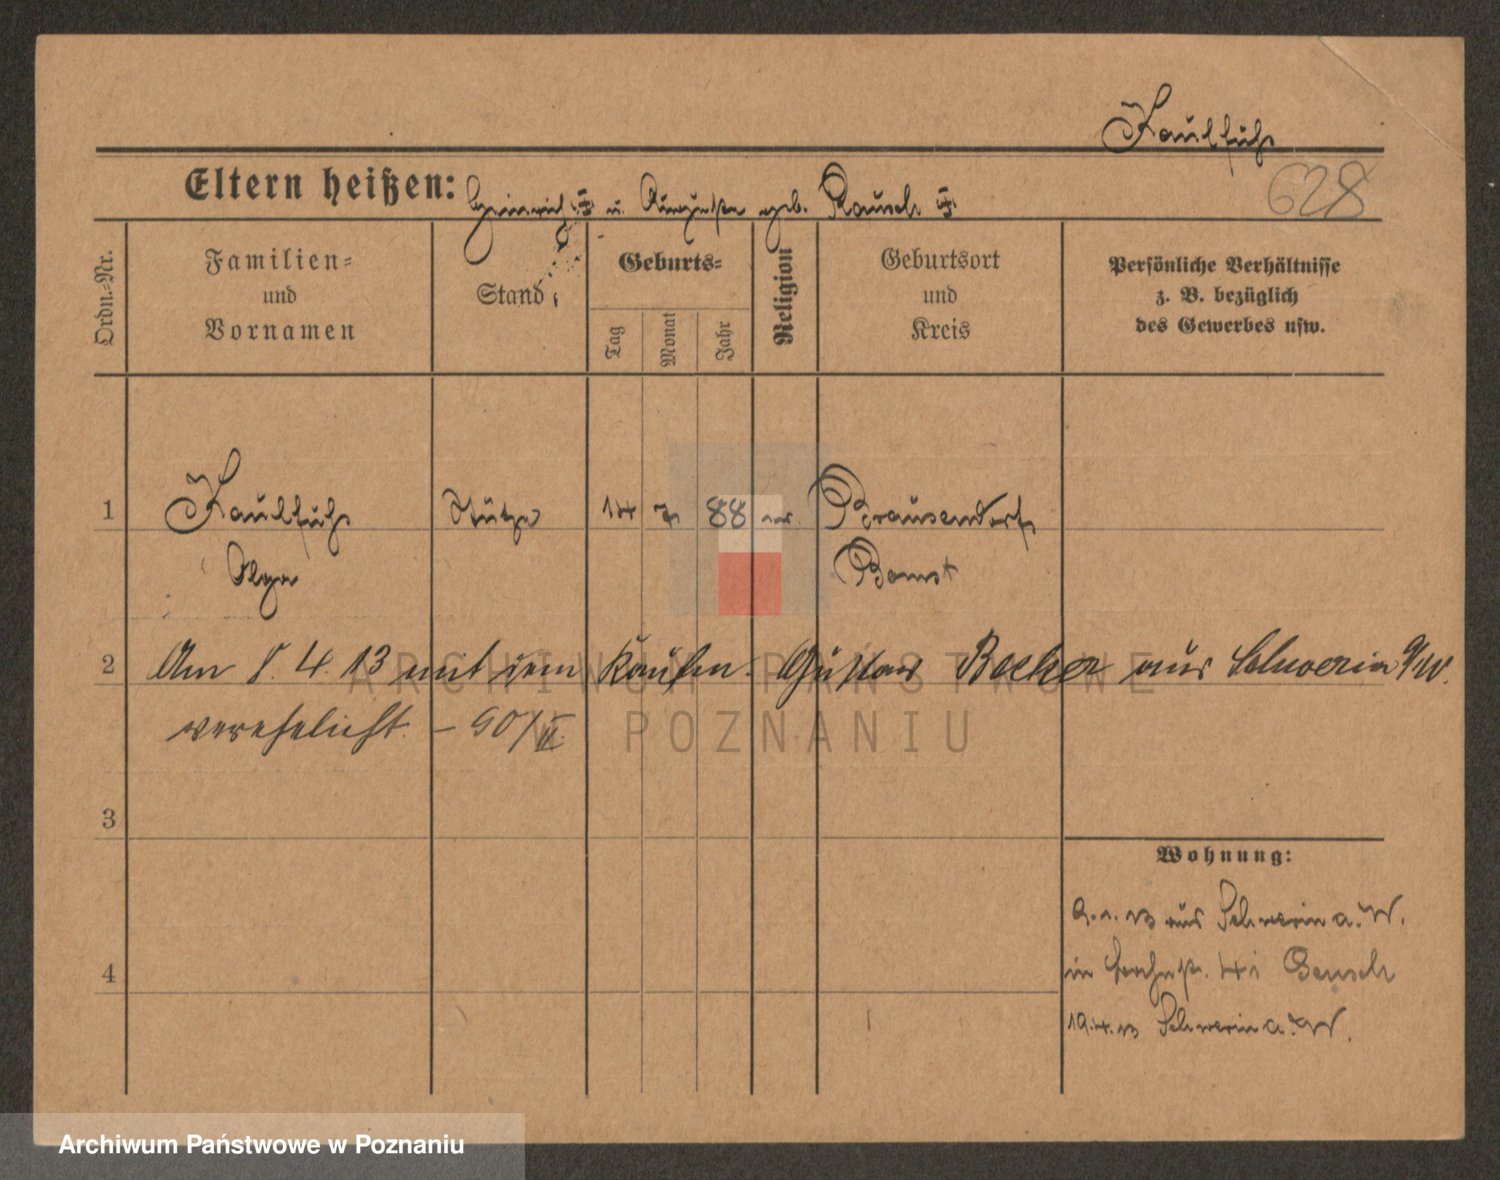 Kaulfuhs
628
Eltern heißen: Heinrich † u. Auguste geb. Rausch †
Ordn.-Nr.
Familien-
und
Vornamen
Stand
Geburts-
Tag
Monat
Jahr
Religion
Geburtsort
und
Kreis
Persönliche Verhältnisse
z. B. bezüglich
des Gewerbes usw.
1 Kaulfuhs Stütze 14 7. 88 Brausendorf
Olga Bomst
2 Am 8. 4. 13 mit dem Kaufm. Gustav Becker aus Schwerin a/W.
verehelicht. – 90/II
3
Wohnung:
9. 1. 13 aus Schwerin a. W.
in 4 i
4
19. 4. 13 Schwerin a. W.
ARCHIWUM PAŃSTWOWE
W POZNANIU
Archiwum Państwowe w Poznaniu